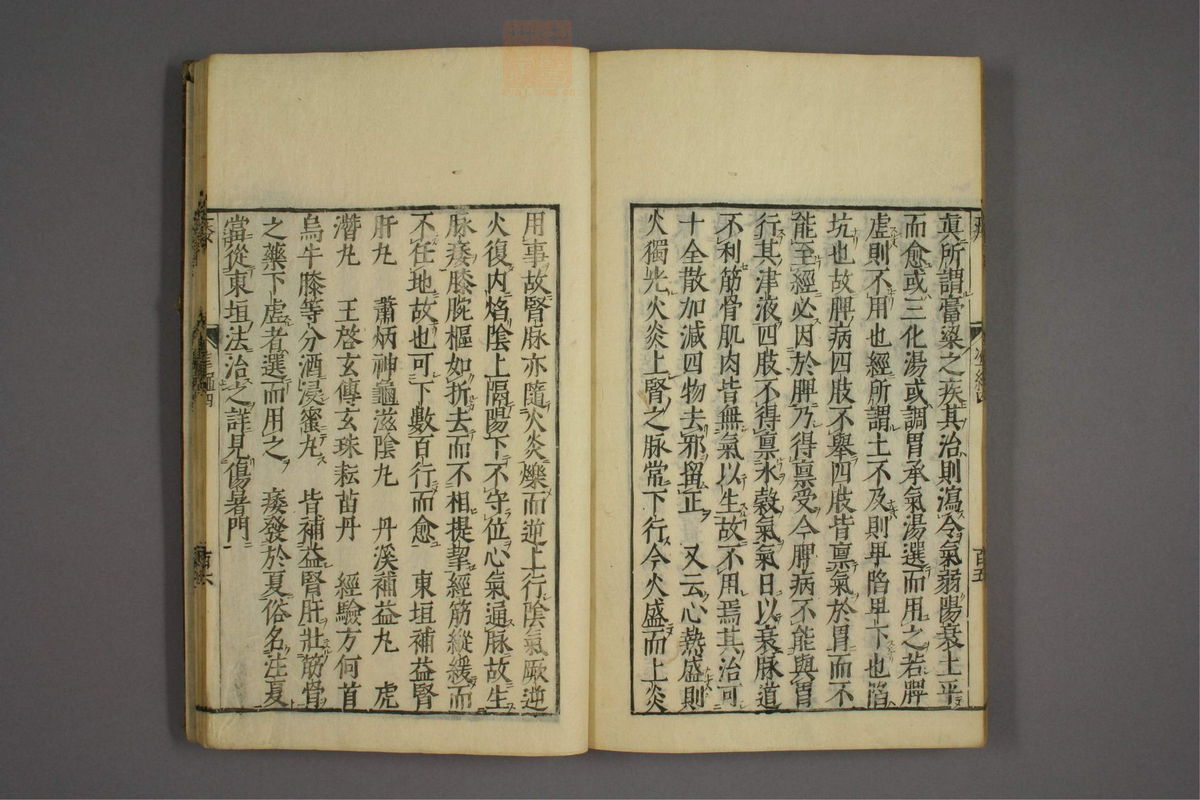 真所謂膏粱之疾其治則瀉令氣弱陽衰土平
而愈或三化湯或調胃承氣湯選而用之若脾
虛則不用也經所謂土不及則卑陷卑下也陷
坑也故脾病四肢不舉四肢皆禀氣於胃而不
能至經必因於脾乃得禀受今脾病不能與胃
行其津液四肢不得禀水穀氣氣日以衰脉道
不利筋骨肌肉皆無氣以生故不用焉其治可
十全散加減四物去邪留正　又云心熱盛則
火獨光火炎上腎之脉常下行今火盛而上炎
用事故腎脉亦隨火炎爍而逆上行陰氣厥逆
火復内焰陰上隔陽下不守位心氣通脉故生
脉痿膝腕樞如折去而不相提挈經筋縱緩而
不任地故也可下數百行而愈　東垣補益腎
肝丸　蕭炳神龜滋陰丸　丹溪補益丸　虎
潛丸　王啓玄傳玄珠耘苗丹　經驗方何首
烏牛膝等分酒浸蜜丸　皆補益腎肝壯筋骨
之藥下虛者選而用之　痿發於夏俗名注夏
當從東垣法治之詳見傷暑門
百五
百六